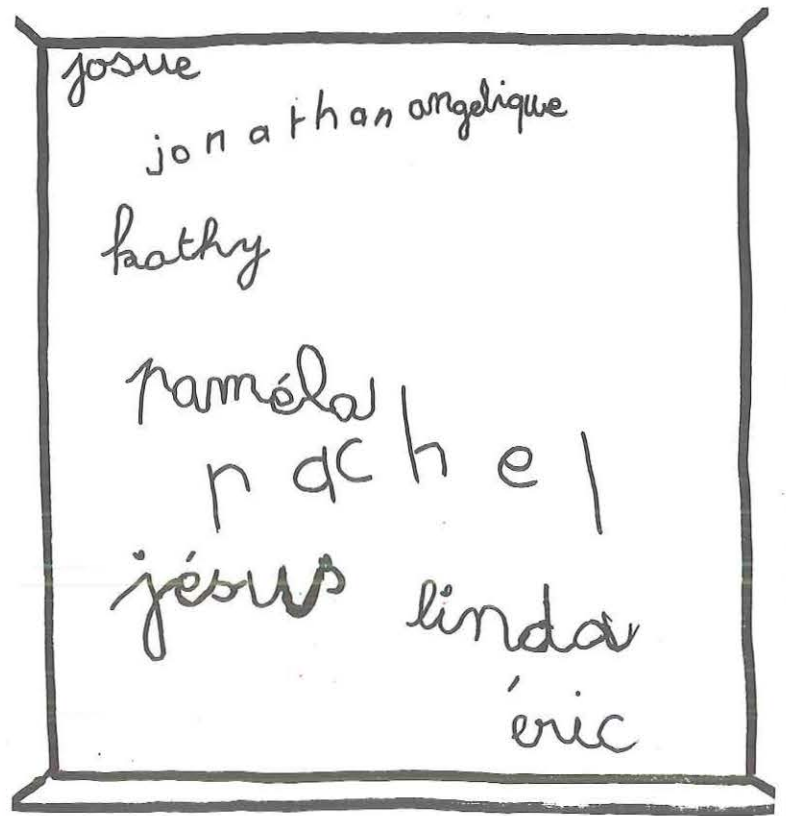 josue
jonathan angelique
kathy
paméla
rachel
jésus linda
éric